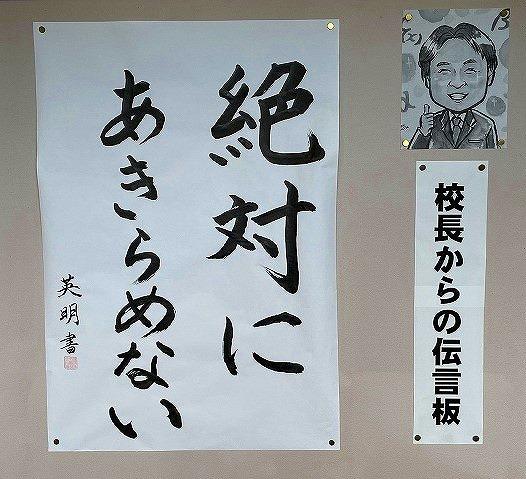 絶対に
あきらめない
英明書
校長からの伝言板